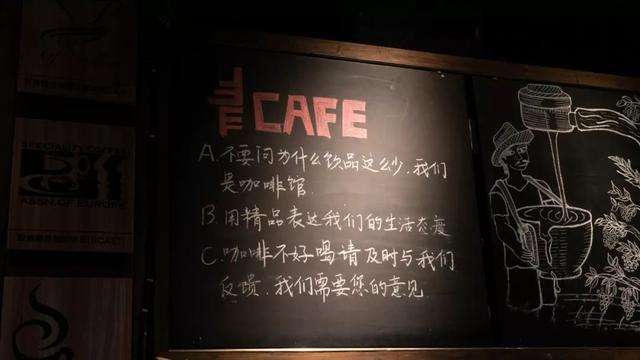 CAFE
A.不要问为什么饮品这么少.我们
是咖啡馆.
B.用精品表达我们的生活态度
C.咖啡不好喝请及时与我们
反馈.我们需要您的意见
SPECIALITY COFFEE
ASSN.OF EUROPE